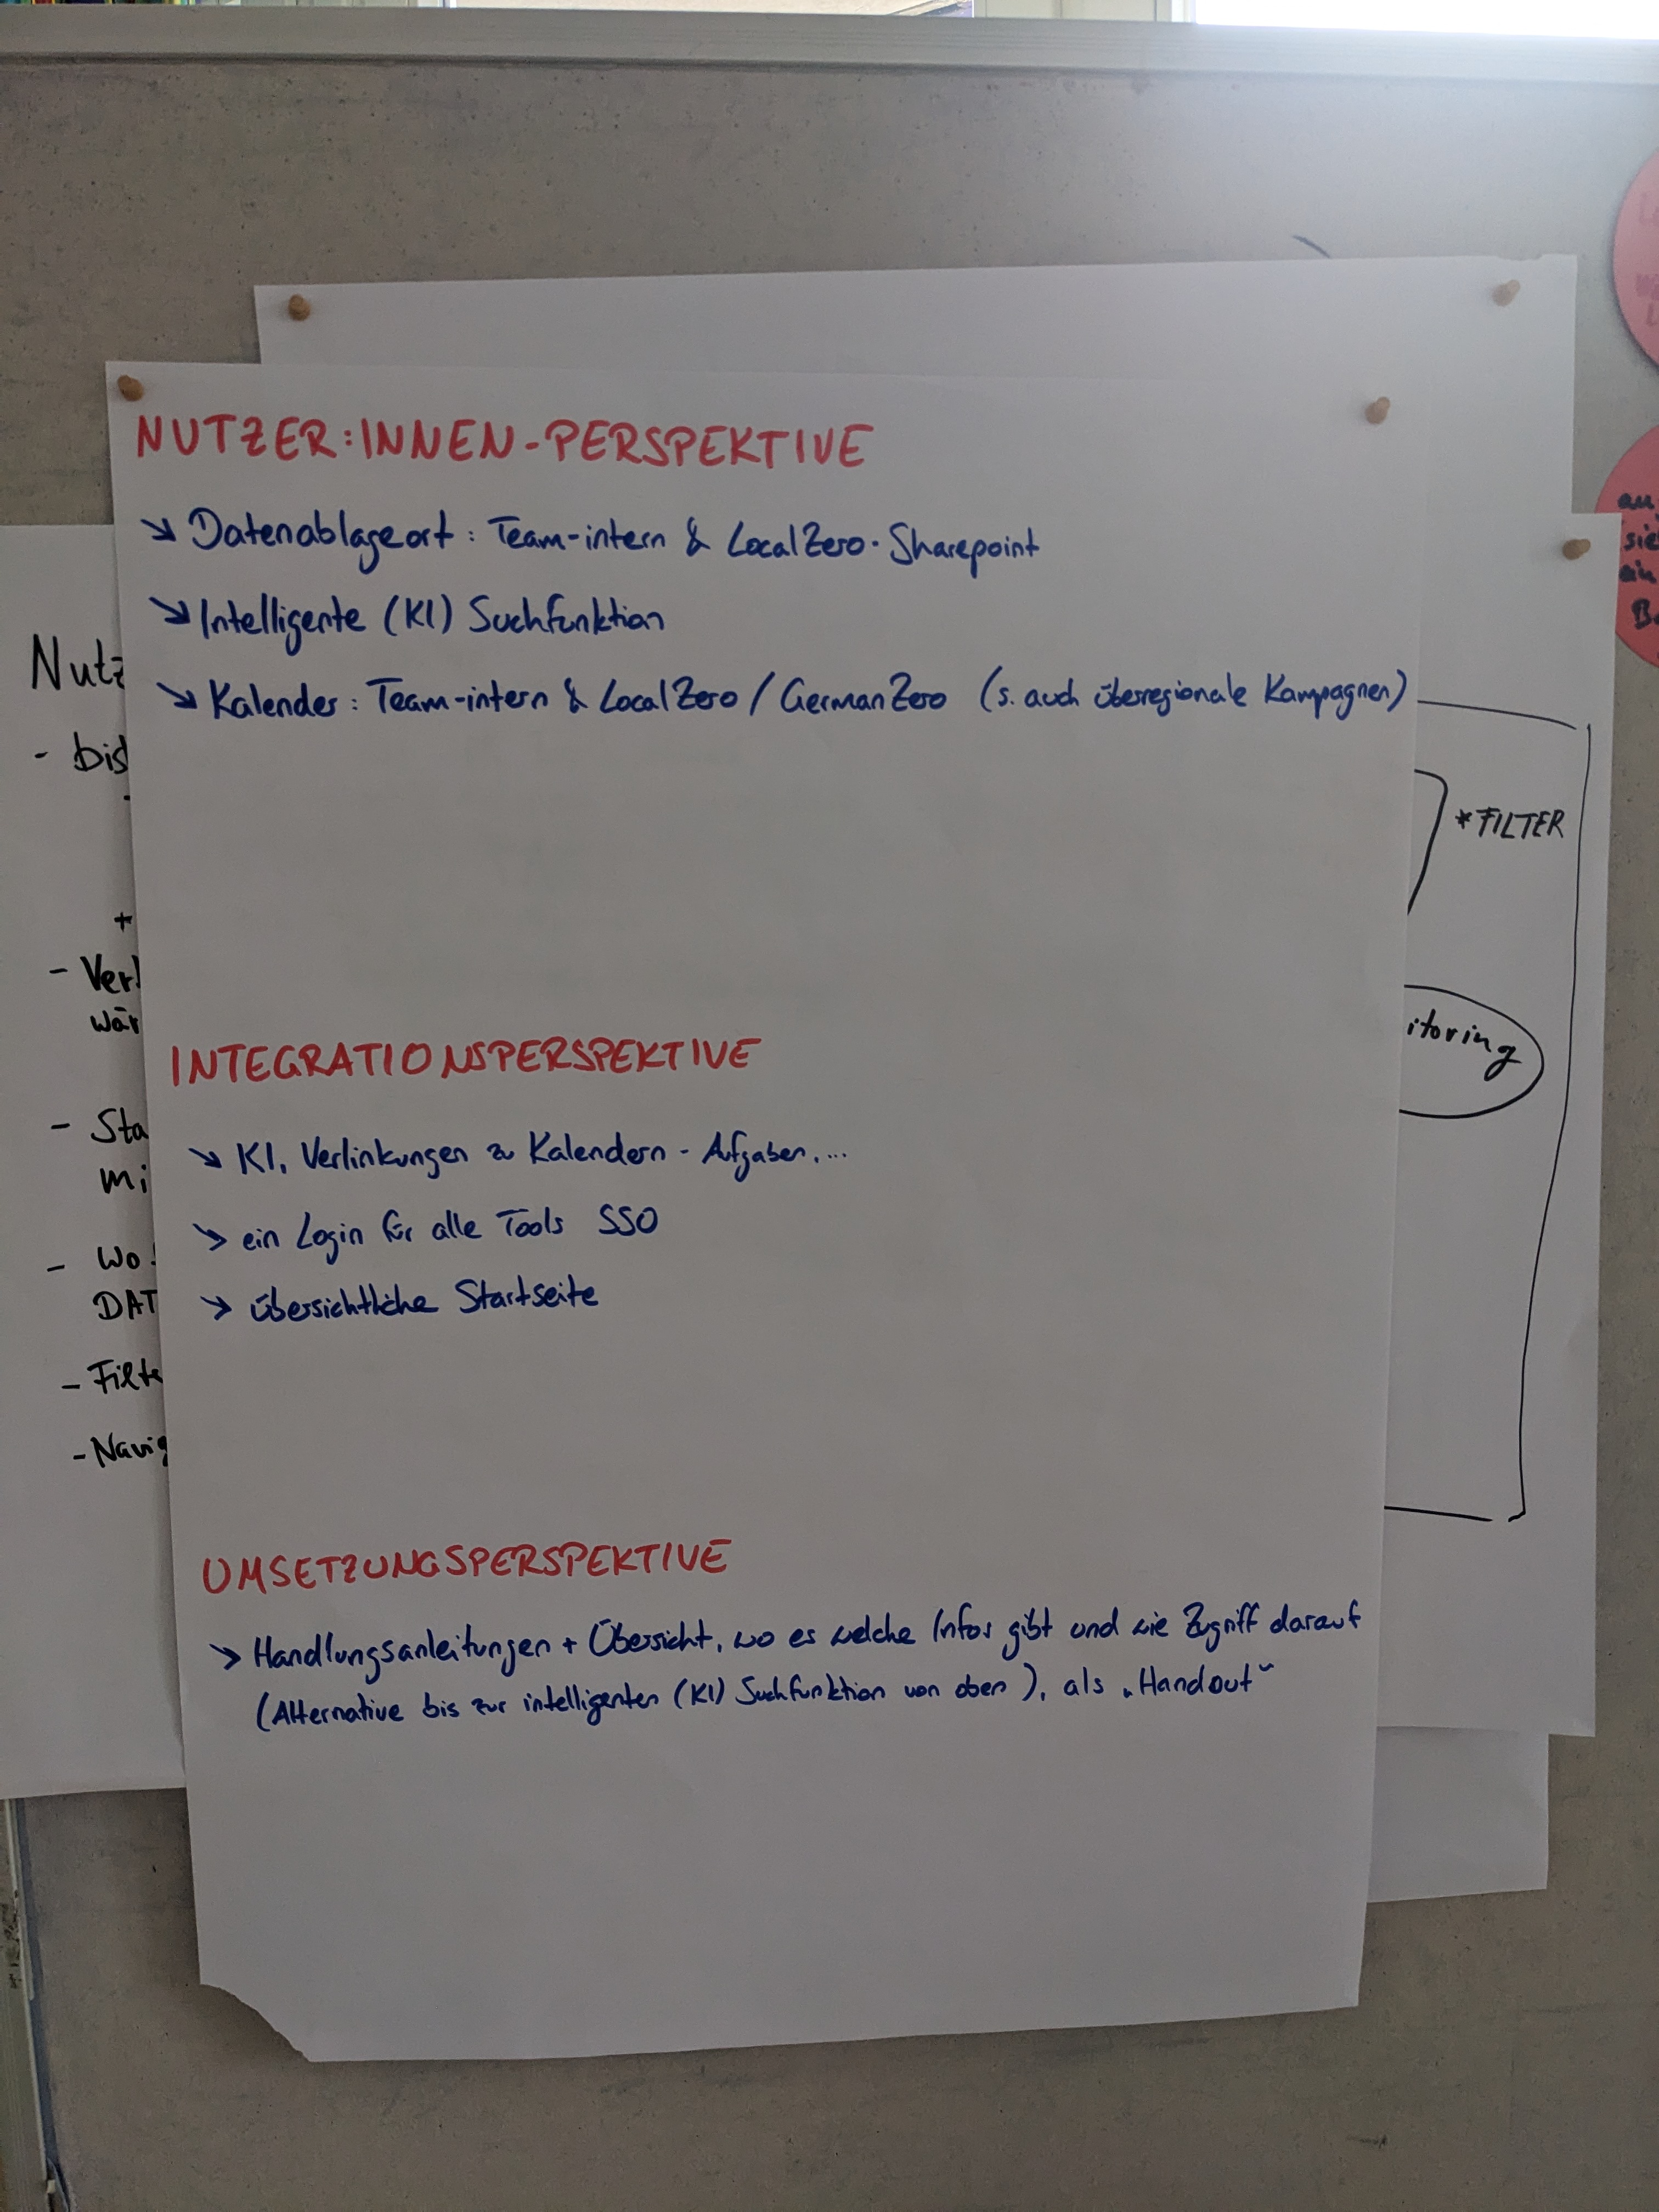 NUTZER:INNEN-PERSPEKTIVE
↘ Datenablageort: Team-intern & LocalZero-Sharepoint
↘ Intelligente (KI) Suchfunktion
↘ Kalender: Team-intern & LocalZero / GermanZero (s. auch überregionale Kampagnen)
INTEGRATIONSPERSPEKTIVE
↘ KI, Verlinkungen zu Kalendern - Aufgaben, ...
↘ ein Login für alle Tools SSO
↘ übersichtliche Startseite
UMSETZUNGSPERSPEKTIVE
↘ Handlungsanleitungen + Übersicht, wo es welche Infos gibt und wie Zugriff darauf
(Alternative bis zur intelligenten (KI) Suchfunktion von oben), als „Handout“
Nutz
- bis
+
- Verl
wär
- Sta
mi
- Wo
DAT
- Filte
- Navig
*FILTER
itoring
sie
ein